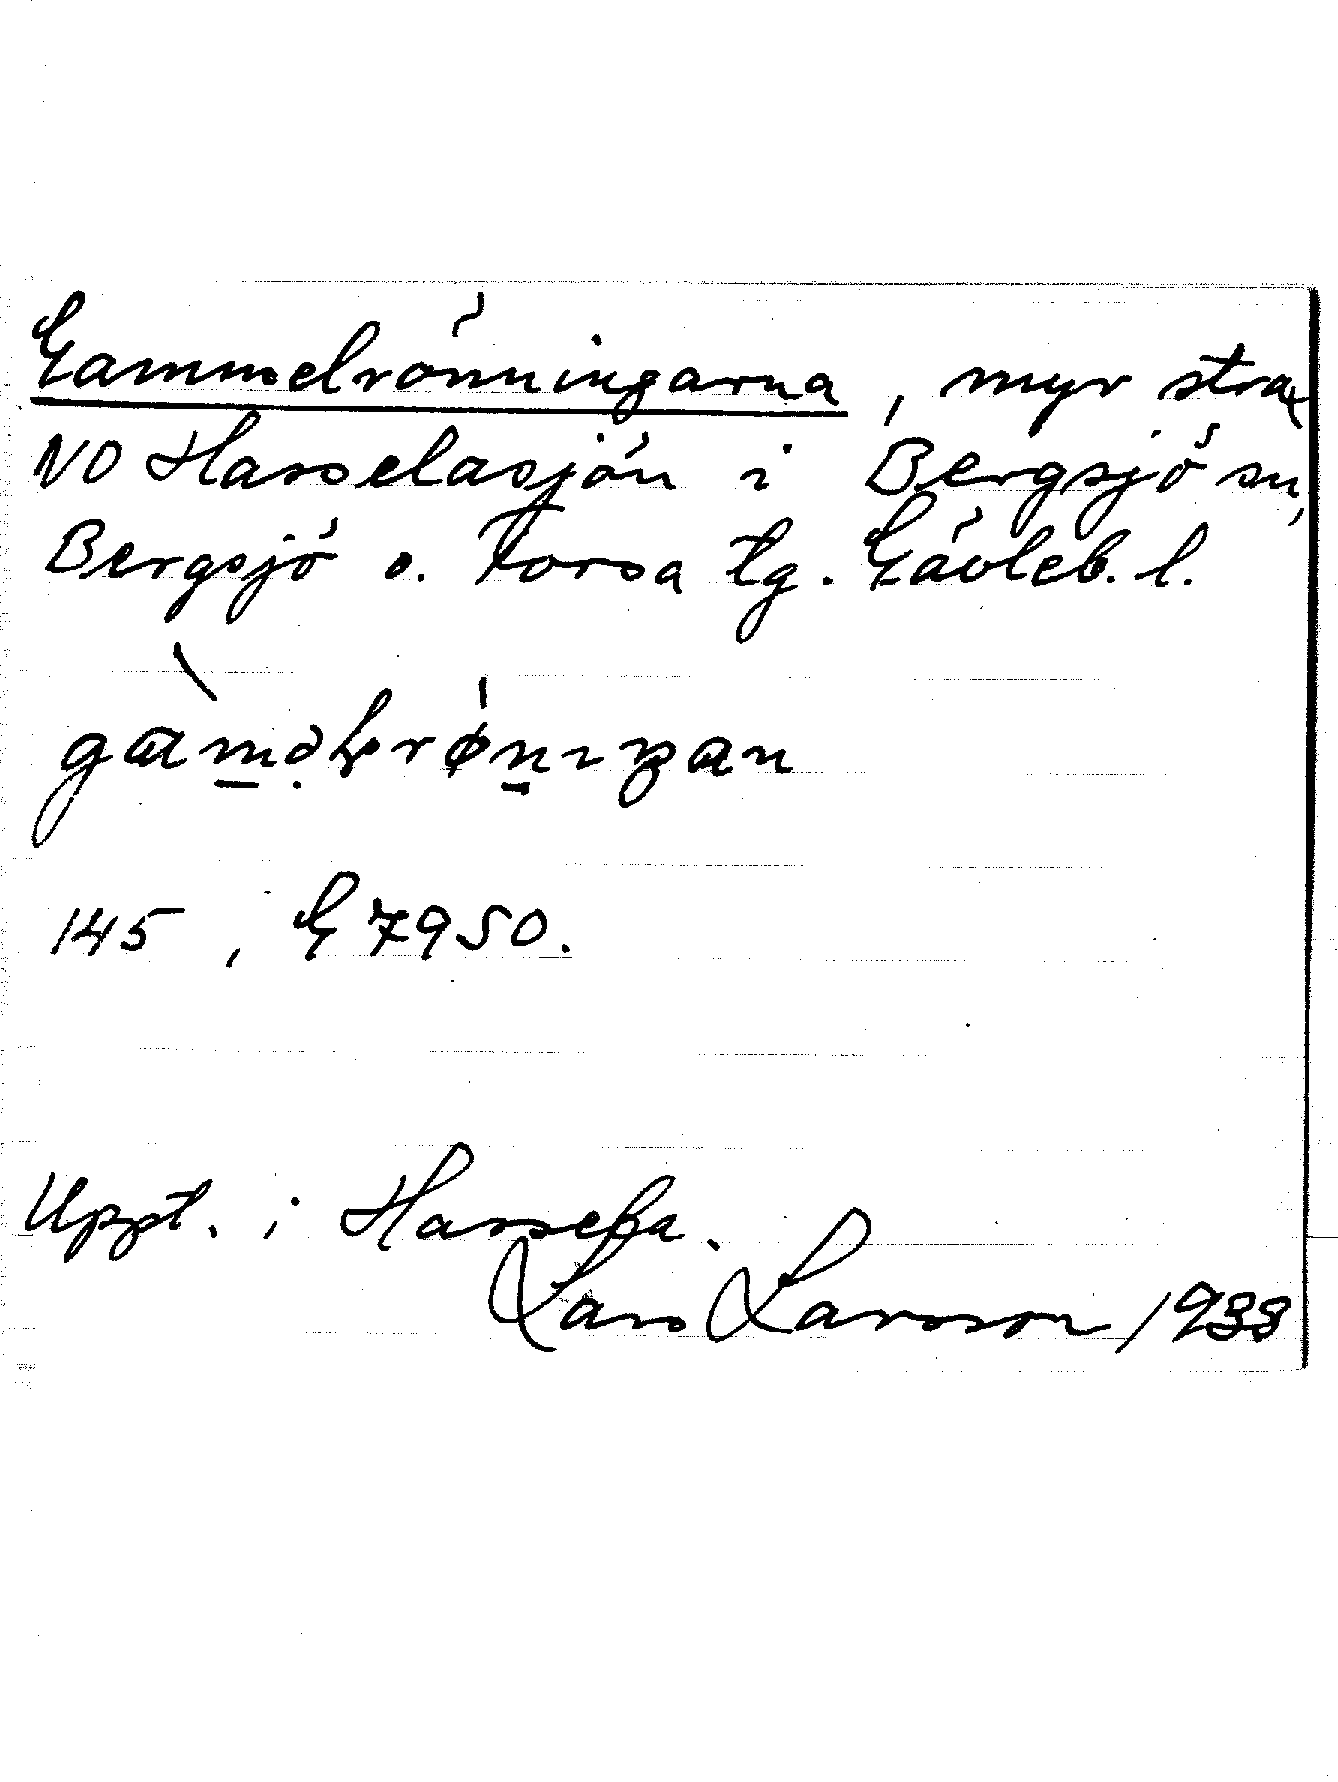 Gammelrönningarna, myr strax
NO Hasselasjön i Bergsjö sn,
Bergsjö o. Forsa tg. Gävleb. l.
145, G 7950.
Uppt. i Hassela.
Lars Larsson 1933